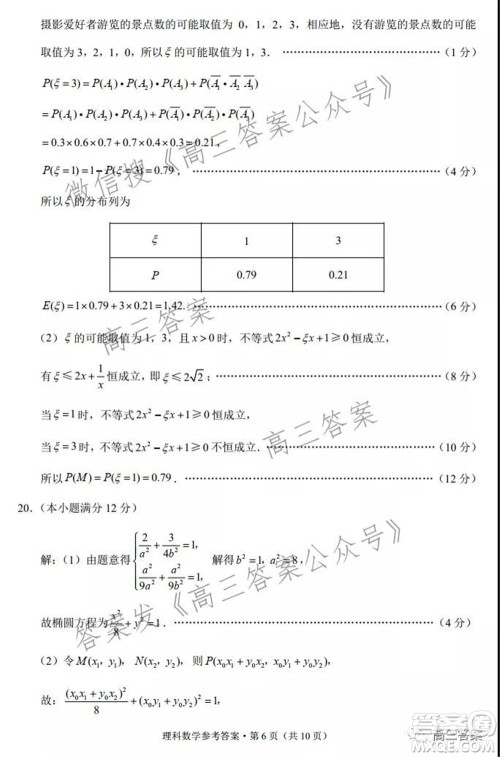 摄影爱好者游览的景点数的可能取值为 0，1，2，3，相应地，没有游览的景点数的可能
取值为 3，2，1，0，所以 ξ 的可能取值为 1，3．……（1 分）
P(ξ=3)=P(A₁)•P(A₂)•P(A₃)+P(A̅₁•A̅₂ A̅₃)
=P(A₁)•P(A₂)•P(A₃)+P(A̅₁)•P(A̅₂)•P(A̅₃)
=0.3×0.6×0.7+0.7×0.4×0.3=0.21，
P(ξ=1)=1-P(ξ=3)=0.79．……（4 分）
所以 ξ 的分布列为
ξ 1 3
P 0.79 0.21
E(ξ)=1×0.79+3×0.21=1.42．……（6 分）
（2）ξ 的可能取值为 1，3，且 x>0 时，不等式 2x²-ξx+1≥0 恒成立，
有 ξ≤2x+1/x 恒成立，即 ξ≤2√2；……（8 分）
当 ξ=1 时，不等式 2x²-ξx+1≥0 恒成立，
当 ξ=3 时，不等式 2x²-ξx+1≥0 不恒成立．……（10 分）
所以 P(M)=P(ξ=1)=0.79．……（12 分）
20．（本小题满分 12 分）
解：（1）由题意得 {2/a²+3/(4b²)=1， a²/(9a²)+a²/(9b²)=1， 解得 b²=1，a²=8，
故椭圆方程为 x²/8+y²=1．……（4 分）
（2）令 M(x₁，y₁)，N(x₂，y₂)，则 P(x₀x₁+y₀x₂，x₀y₁+y₀y₂)，
故：(x₀x₁+y₀x₂)²/8+(x₀y₁+y₀y₂)²=1，
理科数学参考答案·第 6 页（共 10 页）
微信搜《高三答案公众号》
高三答案
高三答案
答案发《高三答案公众号》
高三答案